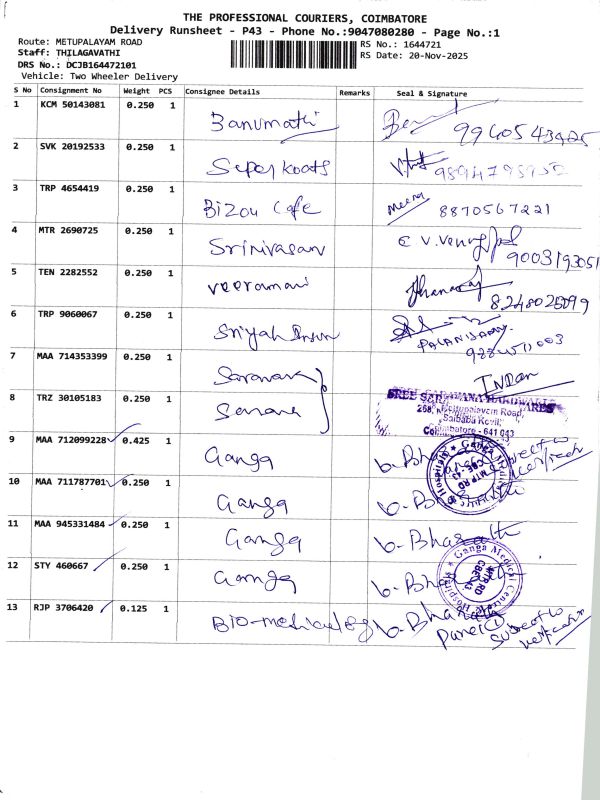 THE PROFESSIONAL COURIERS, COIMBATORE
Delivery Runsheet - P43 - Phone No.:9047080280 - Page No.:1
Route: METUPALAYAM ROAD
Staff: THILAGAVATHI
DRS No.: DCJB164472101
Vehicle: Two Wheeler Delivery
RS No.: 1644721
RS Date: 20-Nov-2025
S No Consignment No Weight PCS Consignee Details Remarks Seal & Signature
1 KCM 50143081 0.250 1 Banumathi
2 SVK 20192533 0.250 1 Super Koats
3 TRP 4654419 0.250 1 Bizou Cafe Meena 8870567221
4 MTR 2690725 0.250 1 Srinivasan 9003193051
5 TEN 2282552 0.250 1 Veeramani 8248025099
6 TRP 9060067 0.250 1 PALANISAMY
7 MAA 714353399 0.250 1 Saravana INDRAN
8 TRZ 30105183 0.250 1 Sarana
SREE SARAVANA HARDWARES
268, Mettupalayam Road,
Saibaba Kovil,
Coimbatore - 641 043
9 MAA 712099228 0.425 1 Ganga b-Bharath Subject to verification
10 MAA 711787701 0.250 1 Ganga b-Bharath
11 MAA 945331484 0.250 1 Ganga b-Bharath
12 STY 460667 0.250 1 Ganga b-Bharath
Ganga Medical Centre Hospitals
MTP RD
CBE-43
13 RJP 3706420 0.125 1 Bio-medical Eg b-Bharath
Subject to verification